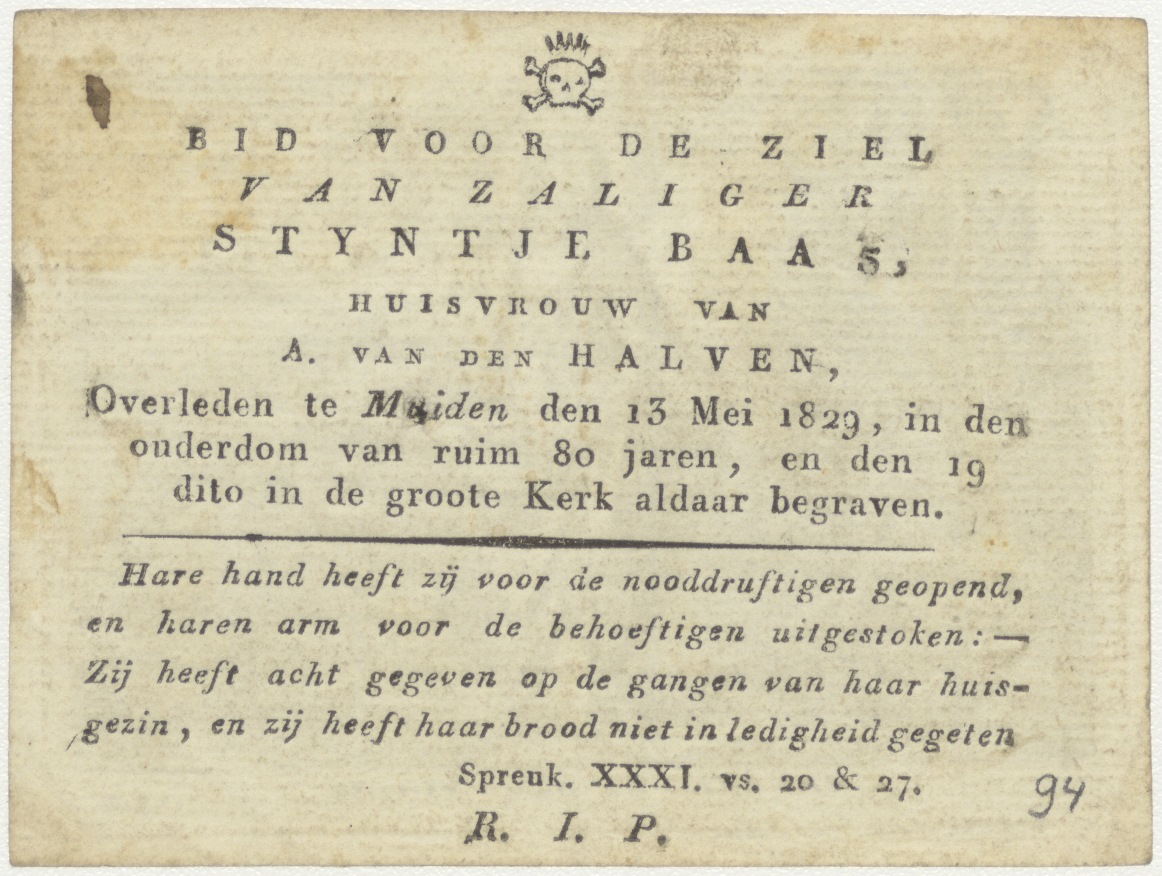 BID VOOR DE ZIEL
VAN ZALIGER
STYNTJE BAAS,
HUISVROUW VAN
A. VAN DEN HALVEN,
Overleden te Muiden den 13 Mei 1829, in den
ouderdom van ruim 80 jaren, en den 19
dito in de groote Kerk aldaar begraven.
Hare hand heeft zij voor de nooddruftigen geopend,
en haren arm voor de behoeftigen uitgestoken: —
Zij heeft acht gegeven op de gangen van haar huis-
gezin, en zij heeft haar brood niet in ledigheid gegeten
Spreuk. XXXI. vs. 20 & 27.
94
R. I. P.